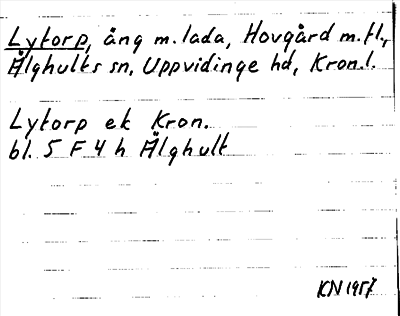 Lytorp, äng m. lada, Hovgård m.fl.,
Älghults sn, Uppvidinge hd, Kron.l.
Lytorp ek Kron.
bl. 5 F 4 h Älghult
KN 1957